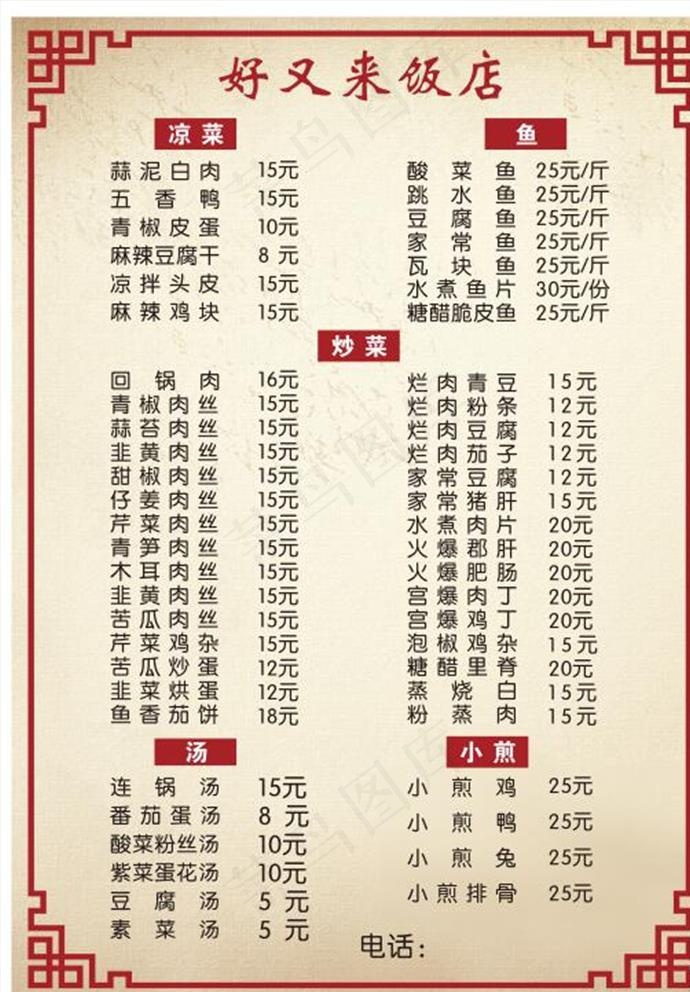 好又来饭店
凉菜
蒜泥白肉 15元
五香鸭 15元
青椒皮蛋 10元
麻辣豆腐干 8元
凉拌头皮 15元
麻辣鸡块 15元
鱼
酸菜鱼 25元/斤
跳水鱼 25元/斤
豆腐鱼 25元/斤
家常鱼 25元/斤
瓦块鱼 25元/斤
水煮鱼片 30元/份
糖醋脆皮鱼 25元/斤
炒菜
回锅肉 16元
青椒肉丝 15元
蒜苔肉丝 15元
韭黄肉丝 15元
甜椒肉丝 15元
仔姜肉丝 15元
芹菜肉丝 15元
青笋肉丝 15元
木耳肉丝 15元
韭黄肉丝 15元
苦瓜肉丝 15元
芹菜鸡杂 15元
苦瓜炒蛋 12元
韭菜烘蛋 12元
鱼香茄饼 18元
烂肉青豆 15元
烂肉粉条 12元
烂肉豆腐 12元
烂肉茄子 12元
家常豆腐 12元
家常猪肝 15元
水煮肉片 20元
火爆郡肝 20元
火爆肥肠 20元
宫爆肉丁 20元
宫爆鸡丁 20元
泡椒鸡杂 15元
糖醋里脊 20元
蒸烧白 15元
粉蒸肉 15元
汤
连锅汤 15元
番茄蛋汤 8元
酸菜粉丝汤 10元
紫菜蛋花汤 10元
豆腐汤 5元
素菜汤 5元
小煎
小煎鸡 25元
小煎鸭 25元
小煎兔 25元
小煎排骨 25元
电话：